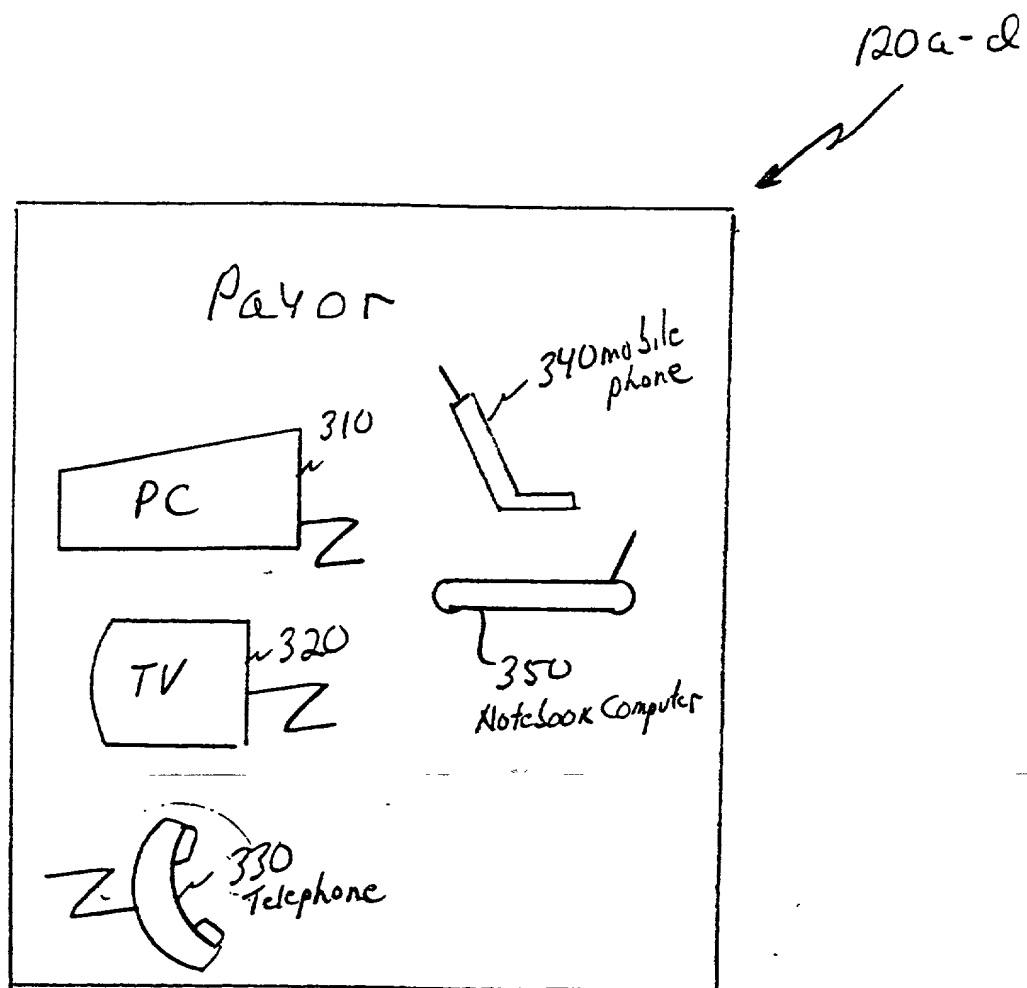 120a-d
Payor
340 mobile
phone
310
PC
320
TV
350
Notebook Computer
330
Telephone